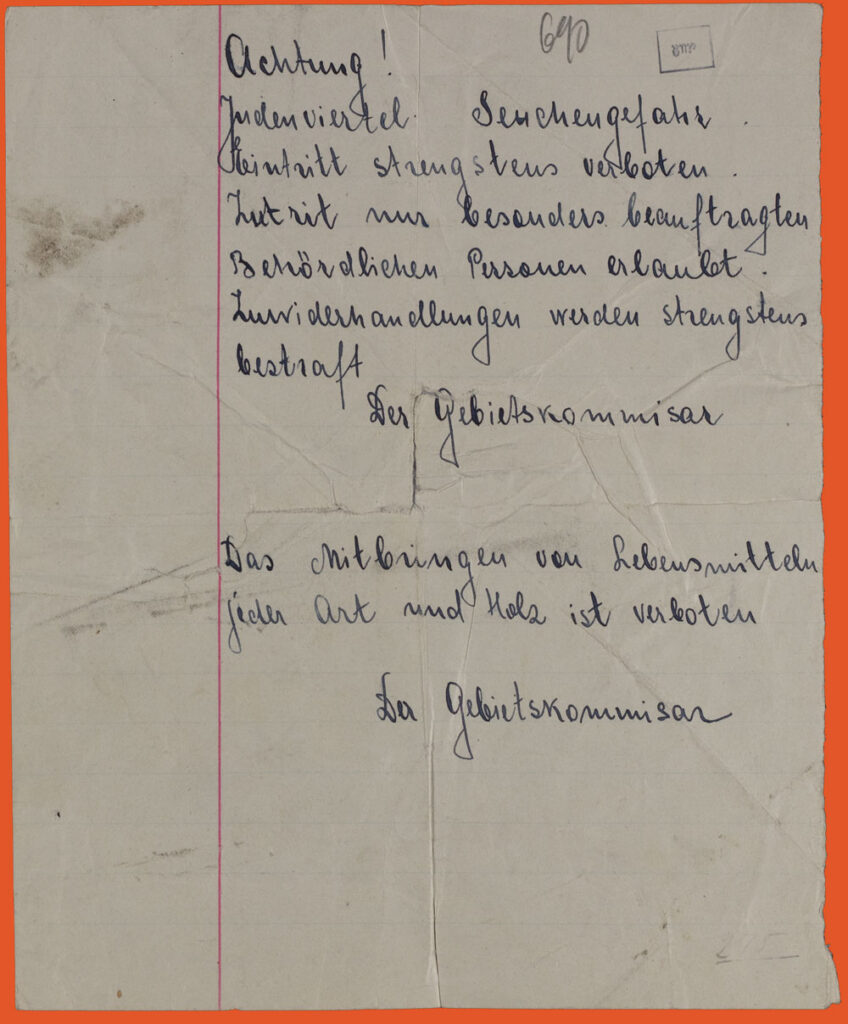 690
Achtung!
Judenviertel. Seuchengefahr.
Eintritt strengstens verboten.
Zutrit nur besonders beauftragten
Behördlichen Personen erlaubt.
Zuwiderhandlungen werden strengstens
bestraft
Der Gebietskommisar
Das Mitbringen von Lebensmitteln
jeder Art und Holz ist verboten
Der Gebietskommisar